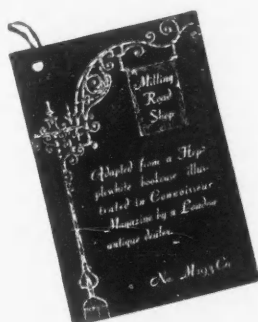 Milling
Road
Shop
Adapted from a Hep-
plewhite bookcase illus-
trated in Connoisseur
Magazine by a London
antique dealer.
No.